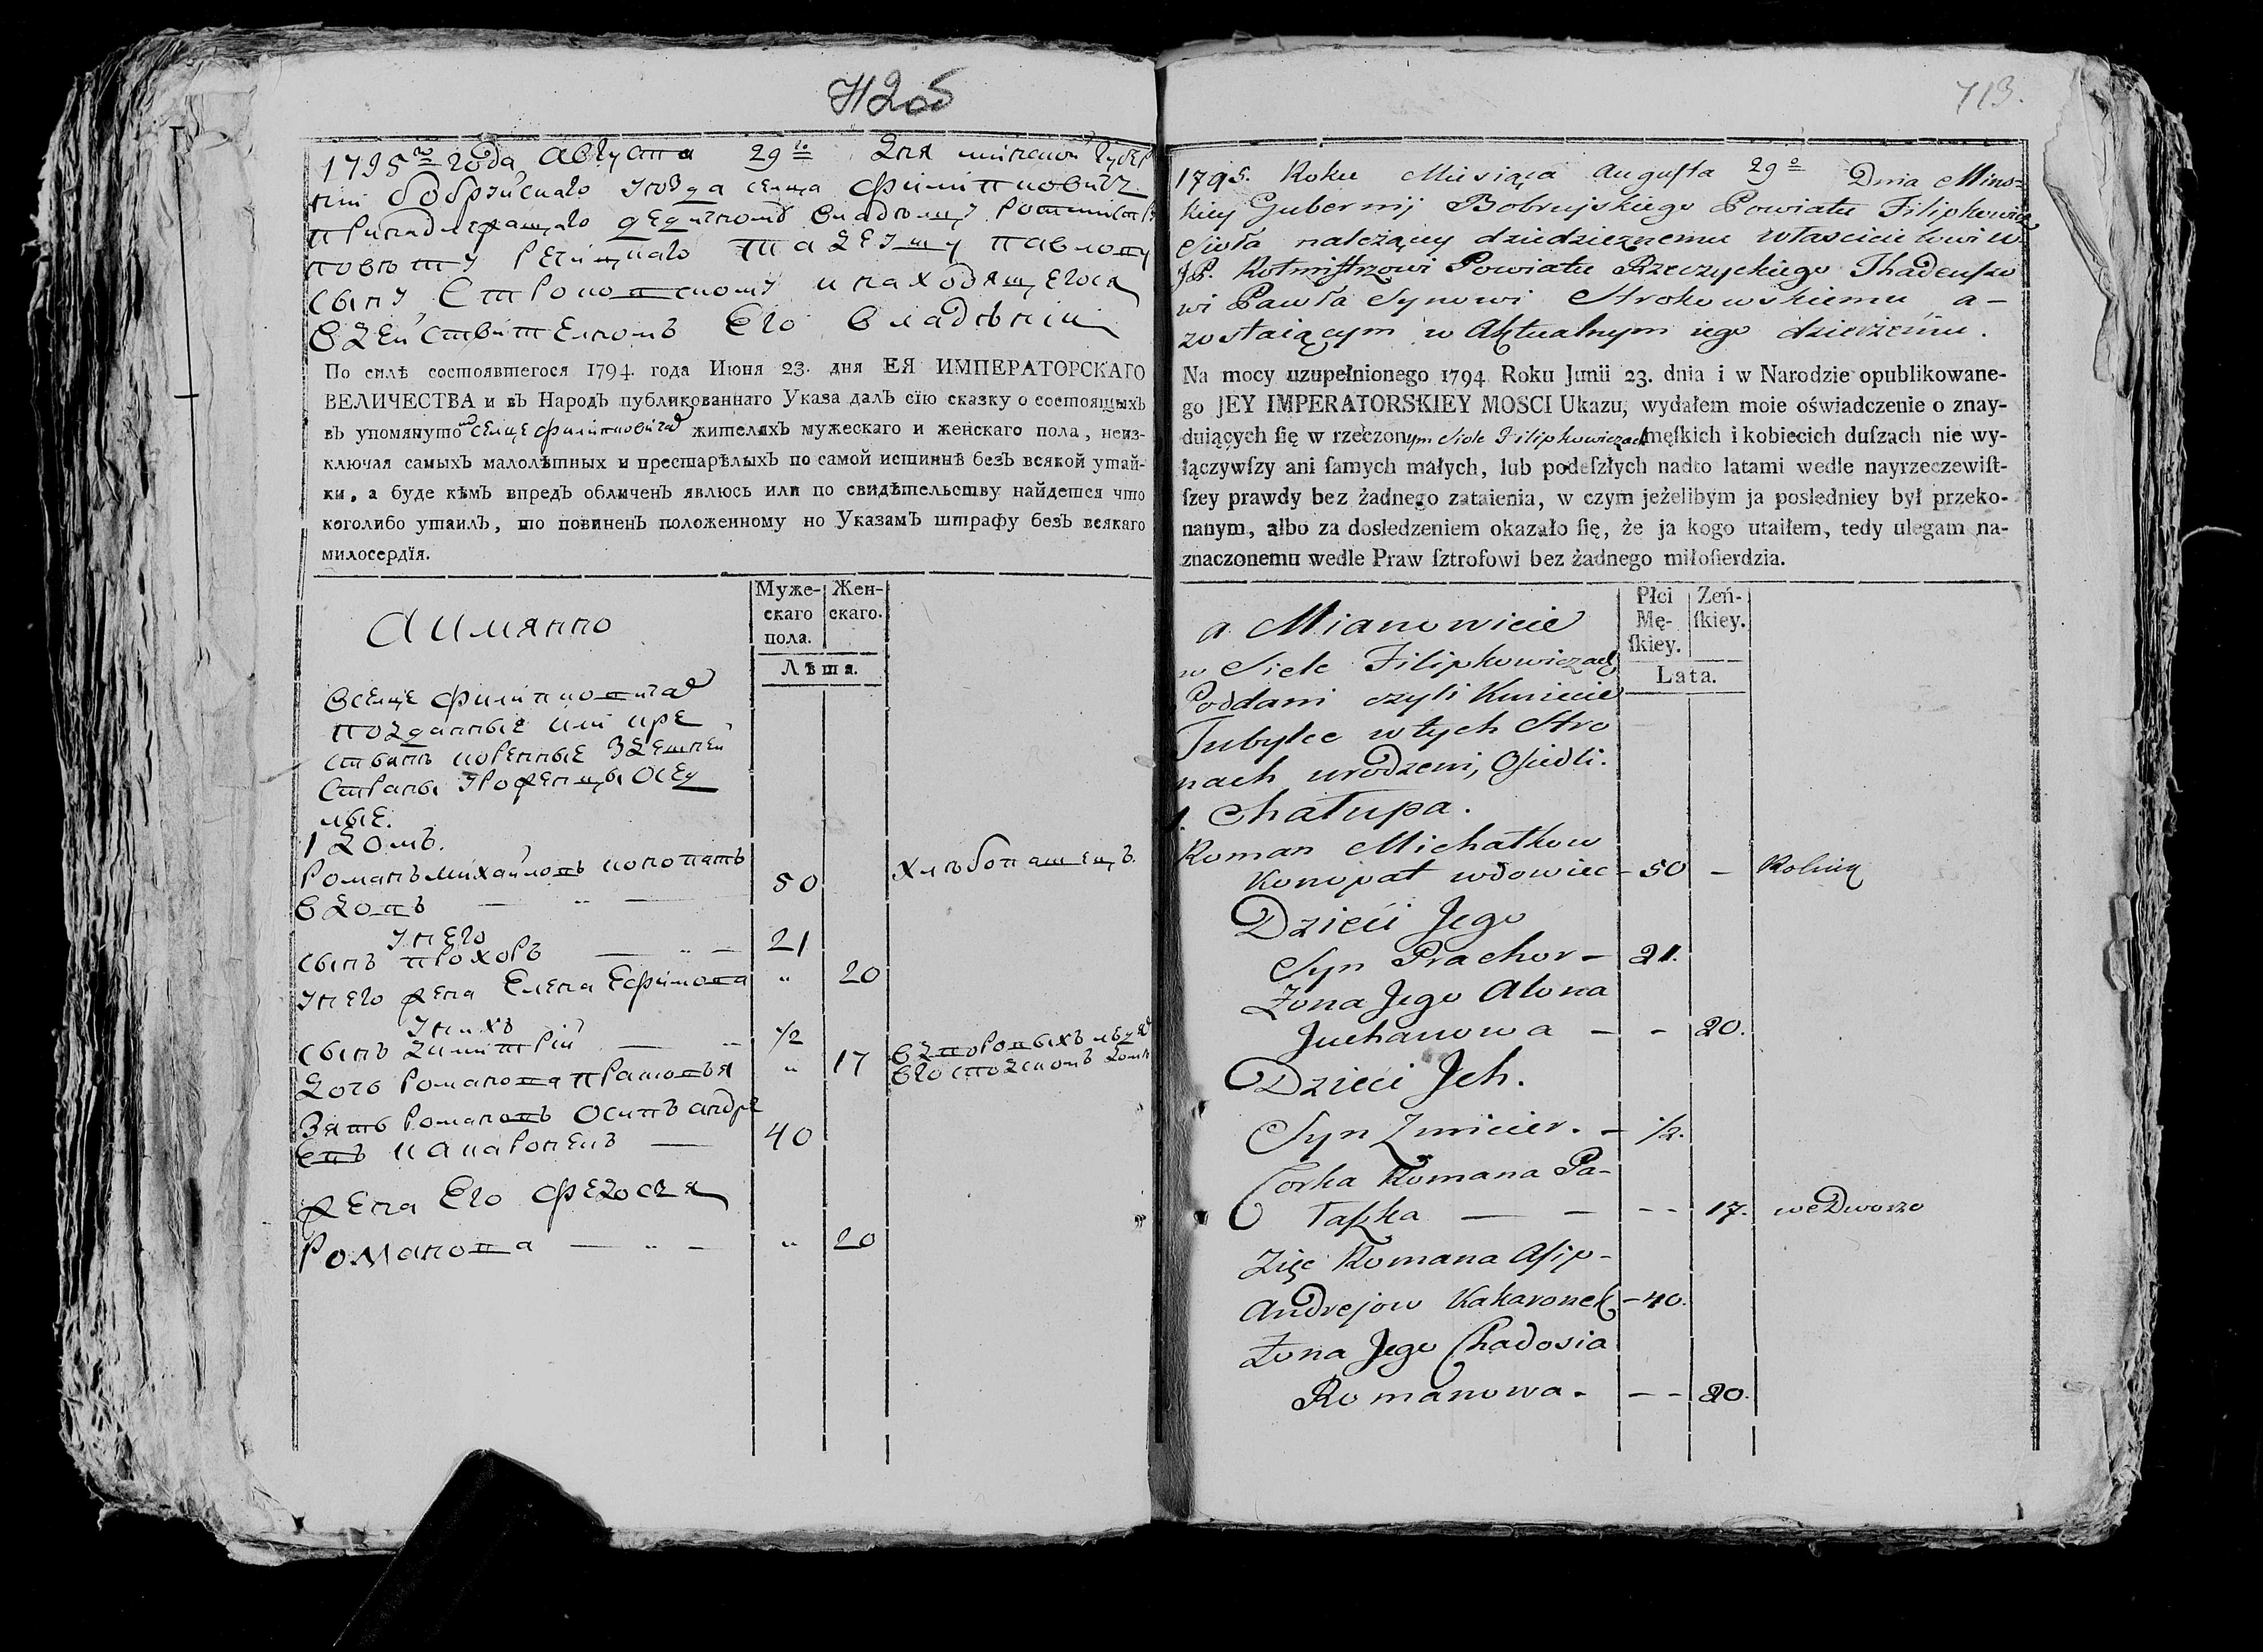 712об
1795го года Августа 29го Дня минской губер
нiи бобруйскаго уѣзда селца филипковичъ
принадлежащаго дедичному владѣлцу ротмистру
повѣту речицкаго тадеушу павлову
сыну Строковскому и находящегося
вдействителномъ Его владѣнiи
По силѣ состоявшегося 1794. года Июня 23. дня ЕЯ ИМПЕРАТОРСКАГО
ВЕЛИЧЕСТВА и въ Народъ публикованнаго Указа далъ сїю сказку о состоящыхъ
въ упомянутомъ селце филипковичах жителяхъ мужескаго и женскаго пола, неиз-
ключая самыхъ малолѣтныхъ и престарѣлыхъ по самой истиннѣ безъ всякой утай-
ки, а буде кѣмъ впредъ обличенъ явлюсь или по свидѣтельству найдется что
коголибо утаилъ, то повиненъ положенному по Указамъ штрафу безъ всякаго
милосердїя.
Муже-
скаго
пола.
Жен-
скаго.
Лѣта.
Аимянно
Вселце филипковичах
подданные или кре
стьянѣ коренные здешней
страны уроженцы осед
лые.
1 домъ.
Романъ михайловъ конопатъ
вдовъ — " — 50 хлѣбопашецъ.
унего
сынъ прохоръ — " — 21
унего жена Елена Ефимова " 20
унихъ
сынъ димитрiй — " 1/2
дочь романова параш " 17
Зять романовъ осипъ андре
евъ какаронекъ — 40
жена Его федося
романова — " — " 20
713.
1795. Roku Miesiąca Augusta 29º Dnia Mins-
kiey Gubernij Bobruyskiego Powiatu Filipkowicz
Sioła należący dziedzicznemu właścicielowi W
JP. Rotmistrzowi Powiatu Rzeczyckiego Thadeuszo
wi Pawła Synowi Strokowskiemu a-
zostaiącym w Aktualnym iego dzierżeniu.
Na mocy uzupełnionego 1794 Roku Junii 23. dnia i w Narodzie opublikowane-
go JEY IMPERATORSKIEY MOSCI Ukazu, wydałem moie oświadczenie o znay-
duiących ſię w rzeczonym Siole Filipkowiczach męſkich i kobiecich duſzach nie wy-
łączywſzy ani ſamych małych, lub podeſzłych nadto latami wedle nayrzeczewiſt-
ſzey prawdy bez żadnego zataienia, w czym jeżelibym ja posledniey był przeko-
nanym, albo za dosledzeniem okazało ſię, że ja kogo utaiłem, tedy ulegam na-
znaczonemu wedle Praw ſztrofowi bez żadnego miłoſierdzia.
Płci
Mę-
ſkiey.
Zeń-
ſkiey.
Lata.
a Mianowicie
w Siele Filipkowiczach
Poddani czyli Kmiecie
Tubylce wtych Stro
nach urodzeni, Osiedli.
1. Chałupa.
Roman Michałkow
Konopat wdowiec - 50 - Rolnik
Dzieci Jego
Syn Prachor - 21.
Żona Jego Alona
Juchanowa - - 20.
Dzieci Jch.
Syn Zmicier. - 1/2.
Corka Romana Pa-
raszka — - - - 17. we Dworze
Zięc Romana Asip-
Andrejow Kakaronek - 40.
Żona Jego Chadosia
Romanowa. - - 20.